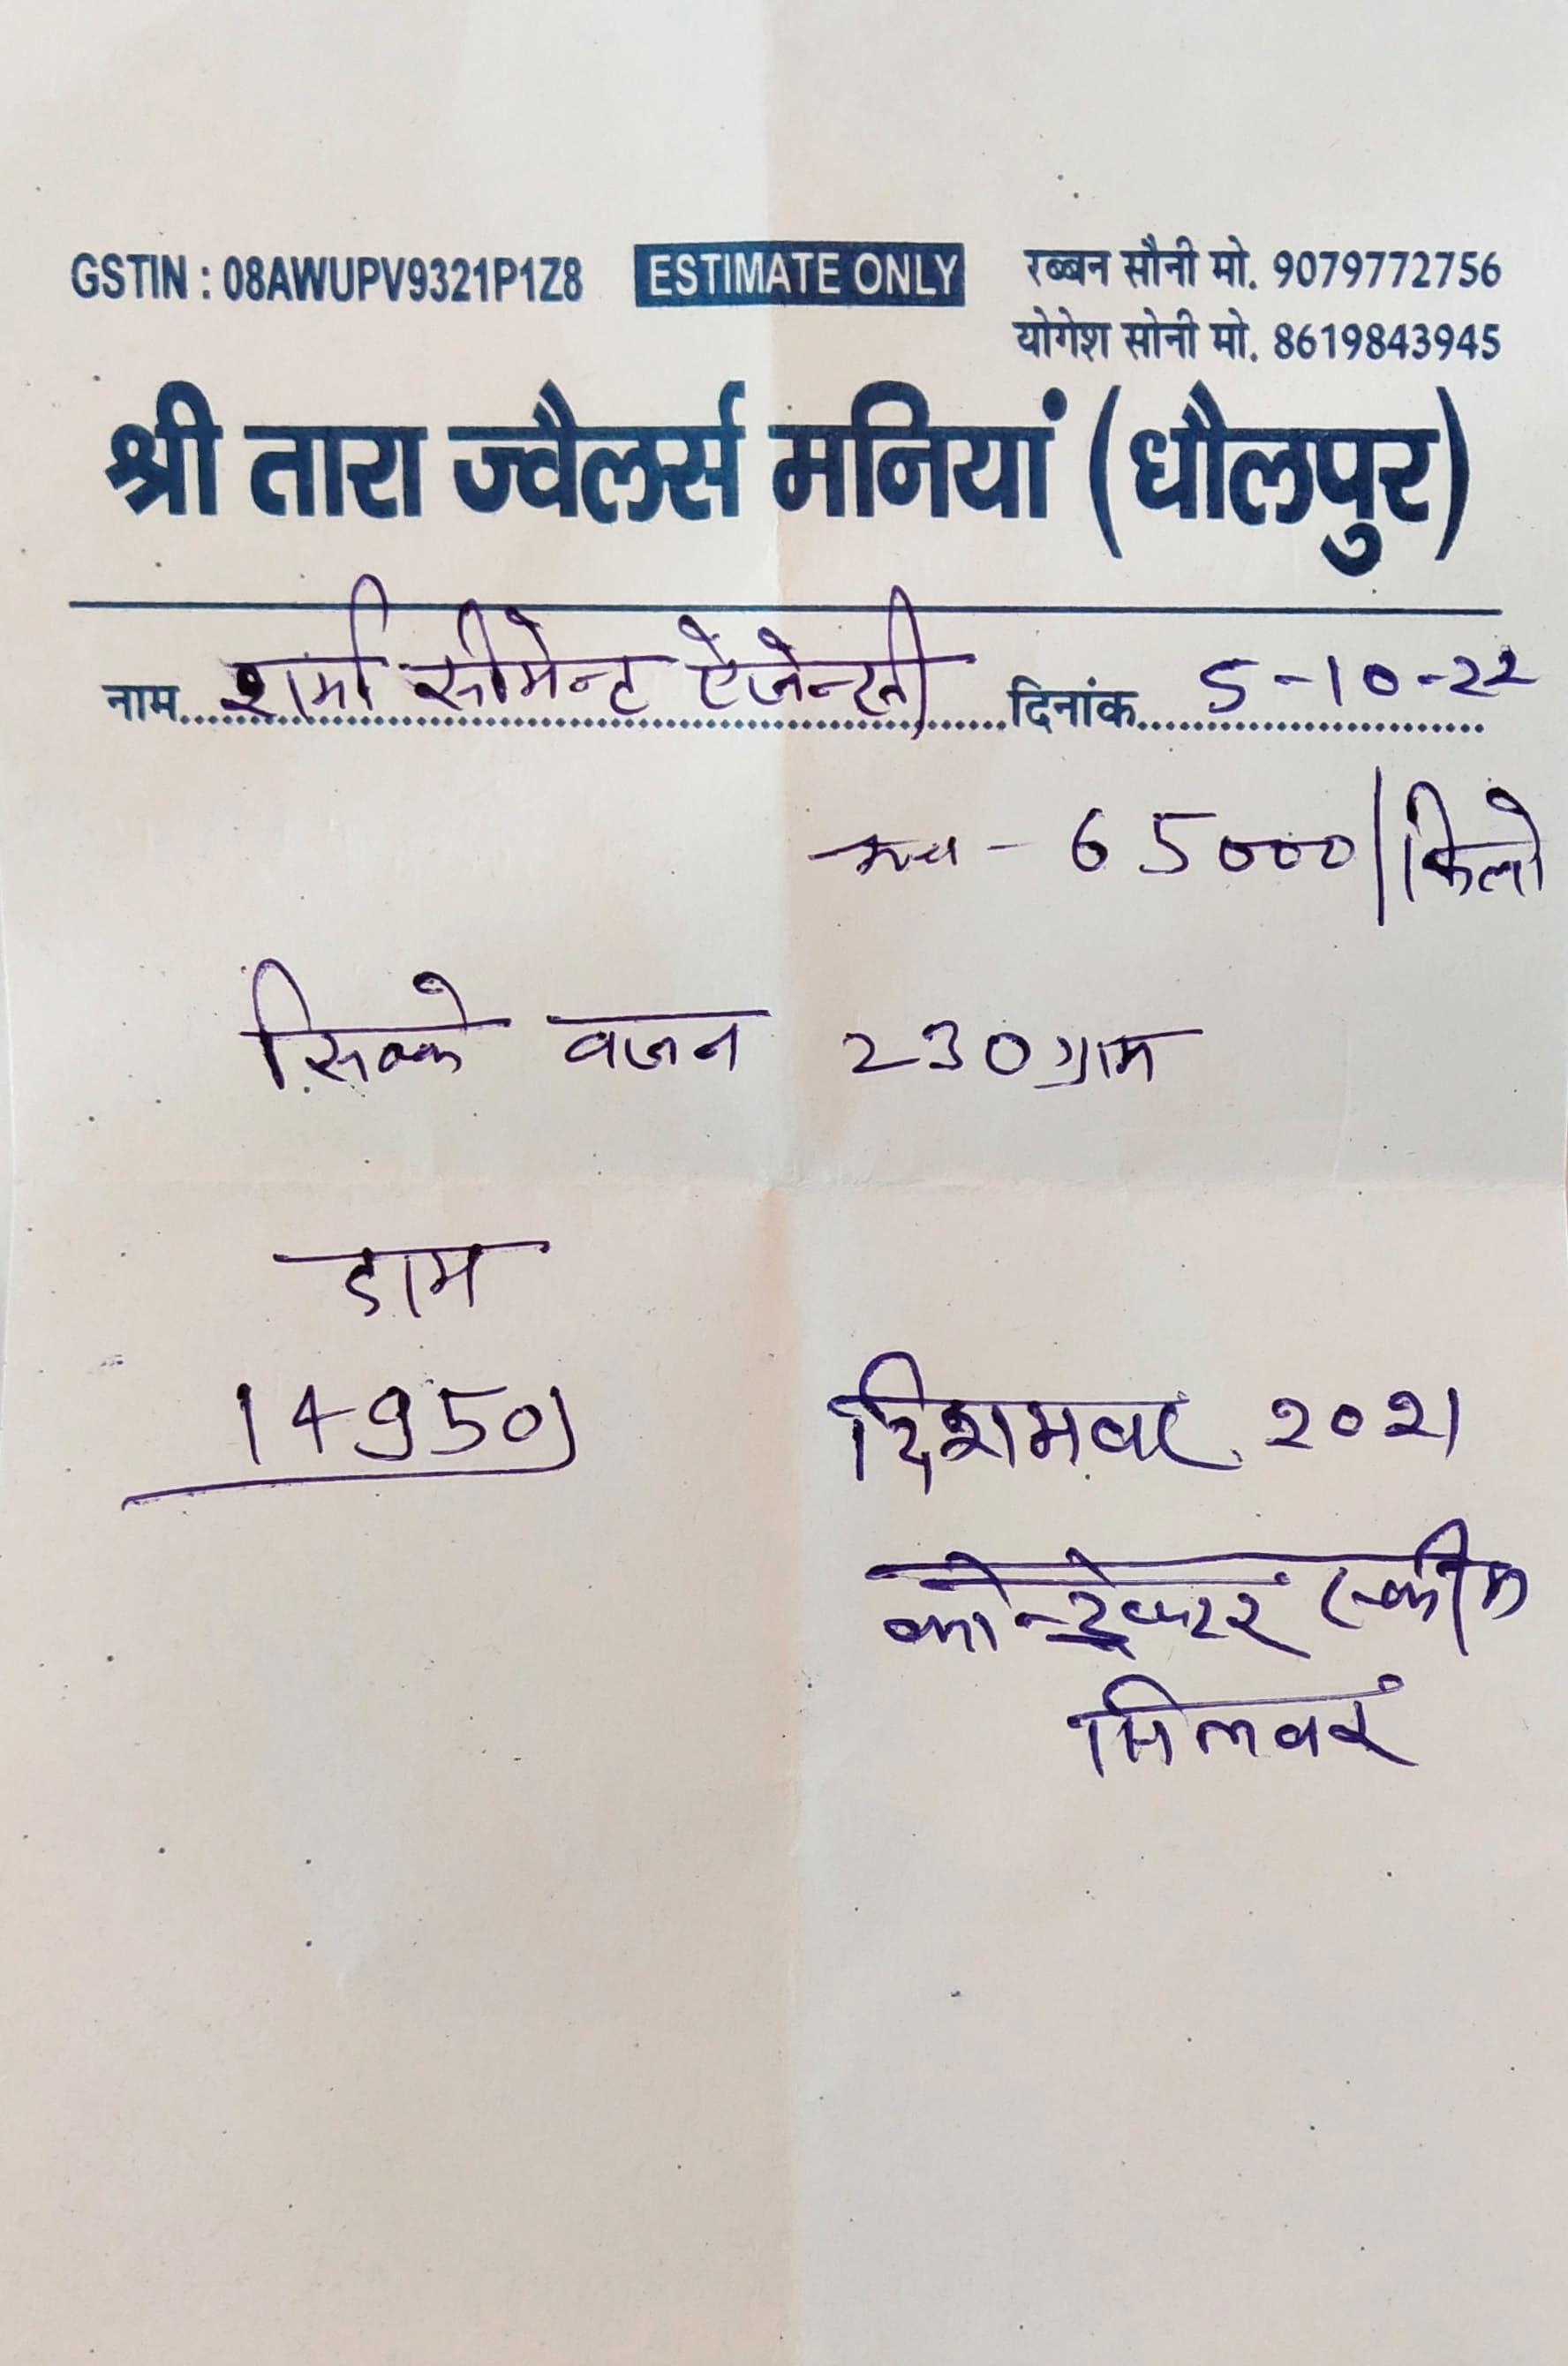 GSTIN : 08AWUPV9321P1Z8 ESTIMATE ONLY रब्बन सौनी मो. 9079772756
योगेश सोनी मो. 8619843945
श्री तारा ज्वैलर्स मनियां (धौलपुर)
नाम शर्मा सीमेन्ट ऐजेन्सी दिनांक 5-10-22
65000/किलो
सिक्के वजन 230 ग्राम
दाम
14950)
दिशमवर २०२१
कोन्ट्रेक्टर स्कीम
सिलवर